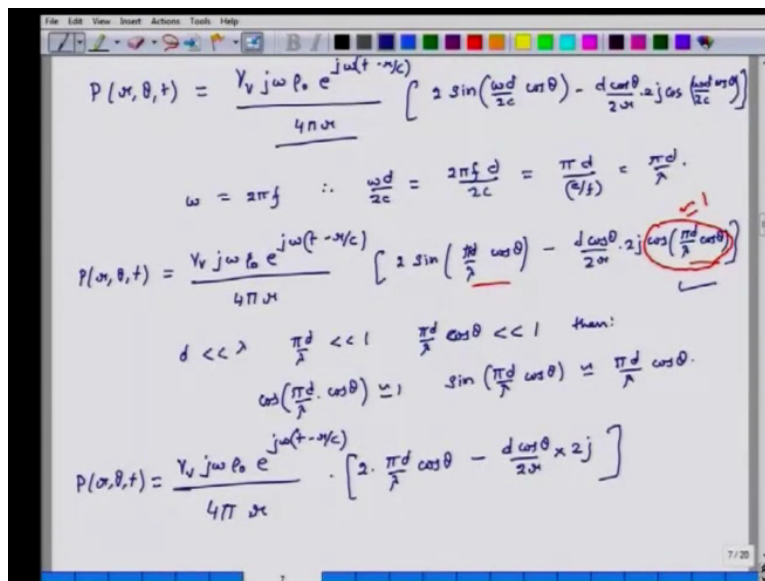 File Edit View Insert Actions Tools Help
P(r,θ,t) = V_v jω ρ₀ e^{jω(t-r/c)} / 4πr [ 2 sin(ωd/2c cosθ) - d cosθ/2r · 2j cos(ωd/2c cosθ) ]
ω = 2πf ∴ ωd/2c = 2πf d/2c = πd/(c/f) = πd/λ.
≃1
P(r,θ,t) = V_v jω ρ₀ e^{jω(t-r/c)} / 4πr [ 2 sin(πd/λ cosθ) - d cosθ/2r · 2j cos(πd/λ cosθ) ]
d << λ πd/λ << 1 πd/λ cosθ << 1 then:
cos(πd/λ · cosθ) ≃ 1, sin(πd/λ cosθ) ≃ πd/λ cosθ.
P(r,θ,t) = V_v jω ρ₀ e^{jω(t-r/c)} / 4πr · [ 2 · πd/λ cosθ - d cosθ/2r × 2j ]
7 / 20
7